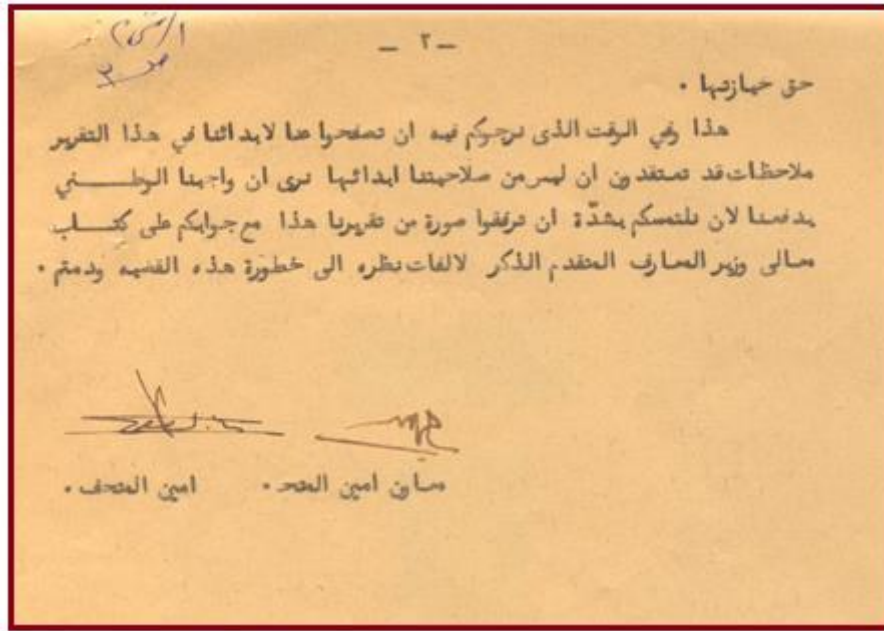 — ٢ —
حق حيازتها .
هذا وفي الوقت الذى نرجوكم فيه ان تصفحوا عنا لابدائنا في هذا التقرير
ملاحظات قد تعتقدون ان ليس من صلاحيتنا ابدائها نرى ان واجبنا الوطني
يدفعنا لان نلتمسكم بشدّة ان ترفقوا صورة من تقريرنا هذا مع جوابكم على كتاب
معالى وزير المعارف المتقدم الذكر لالفات نظره الى خطورة هذه القضيه ودمتم .
معاون امين المتحف . امين المتحف .